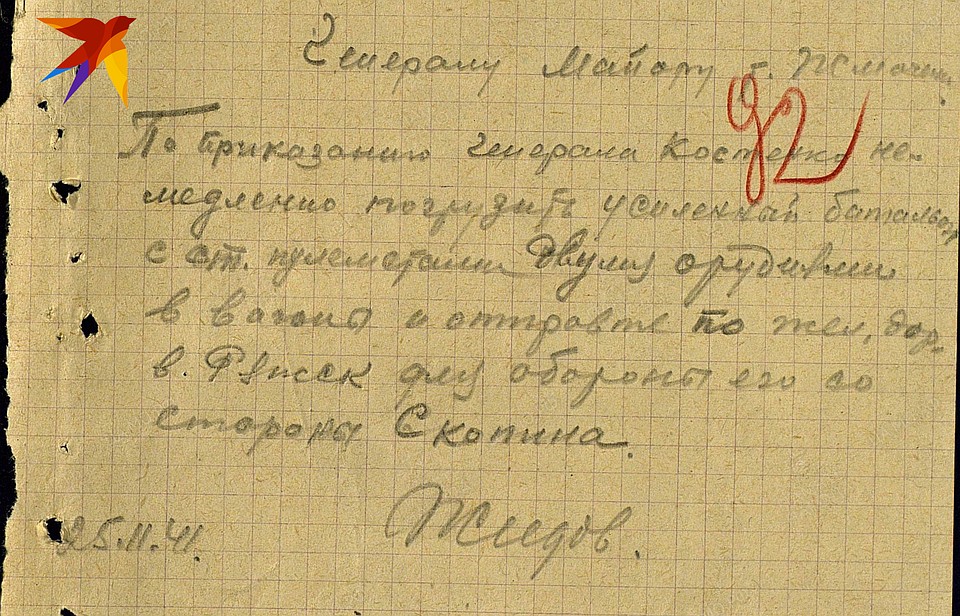 Генералу Майору т. Жмачен.
92
По приказанию генерала Костенко не-
медленно погрузить усиленный батальон
с ст. пулеметами двумя орудиями
в вагоны и отправте по жел. дор.
в. Ряжск для обороны его со
стороны Скопина.
25.11.41.